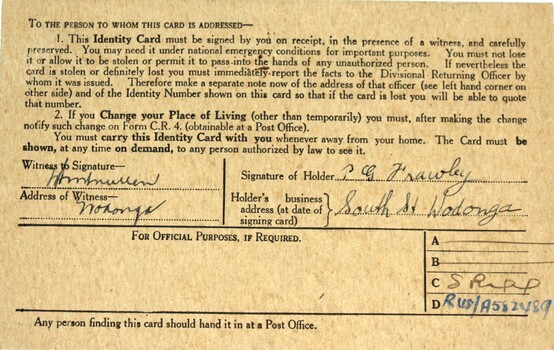 TO THE PERSON TO WHOM THIS CARD IS ADDRESSED—
1. This Identity Card must be signed by you on receipt, in the presence of a witness, and carefully
preserved. You may need it under national emergency conditions for important purposes. You must not lose
it or allow it to be stolen or permit it to pass into the hands of any unauthorized person. If nevertheless the
card is stolen or definitely lost you must immediately report the facts to the Divisional Returning Officer by
whom it was issued. Therefore make a separate note now of the address of that officer (see left hand corner on
other side) and of the Identity Number shown on this card so that if the card is lost you will be able to quote
that number.
2. If you Change your Place of Living (other than temporarily) you must, after making the change
notify such change on Form C.R. 4. (obtainable at a Post Office).
You must carry this Identity Card with you whenever away from your home. The Card must be
shown, at any time on demand, to any person authorized by law to see it.
Witness to Signature—
Address of Witness—
Wodonga
Signature of Holder P G Frawley
Holder's business address (at date of signing card) South St Wodonga
FOR OFFICIAL PURPOSES, IF REQUIRED.
A
B
C
D RUS/A582489
Any person finding this card should hand it in at a Post Office.